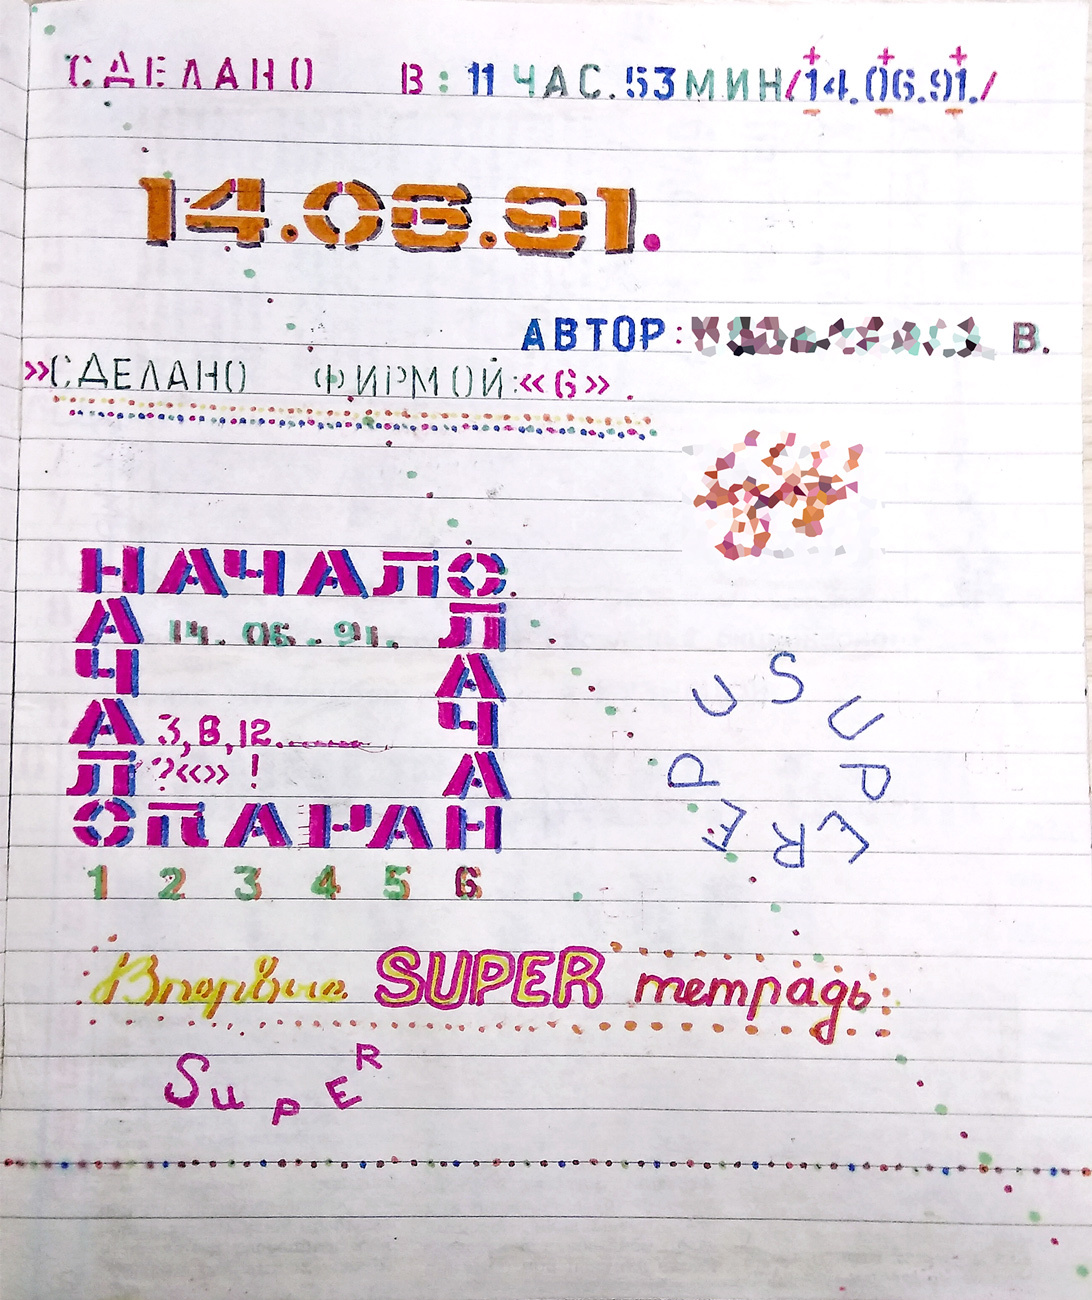 СДЕЛАНО В: 11 ЧАС. 53 МИН /14.06.91./
14.06.91.
АВТОР: В.
»СДЕЛАНО ФИРМОЙ: «6».
НАЧАЛО.
А 14. 06. 91. Л
Ч А
А 3, 8, 12....... Ч
Л ? «» ! А
ОПАРАН
1 2 3 4 5 6
SUPER
SUPER
Впервые SUPER тетрадь
SUPER